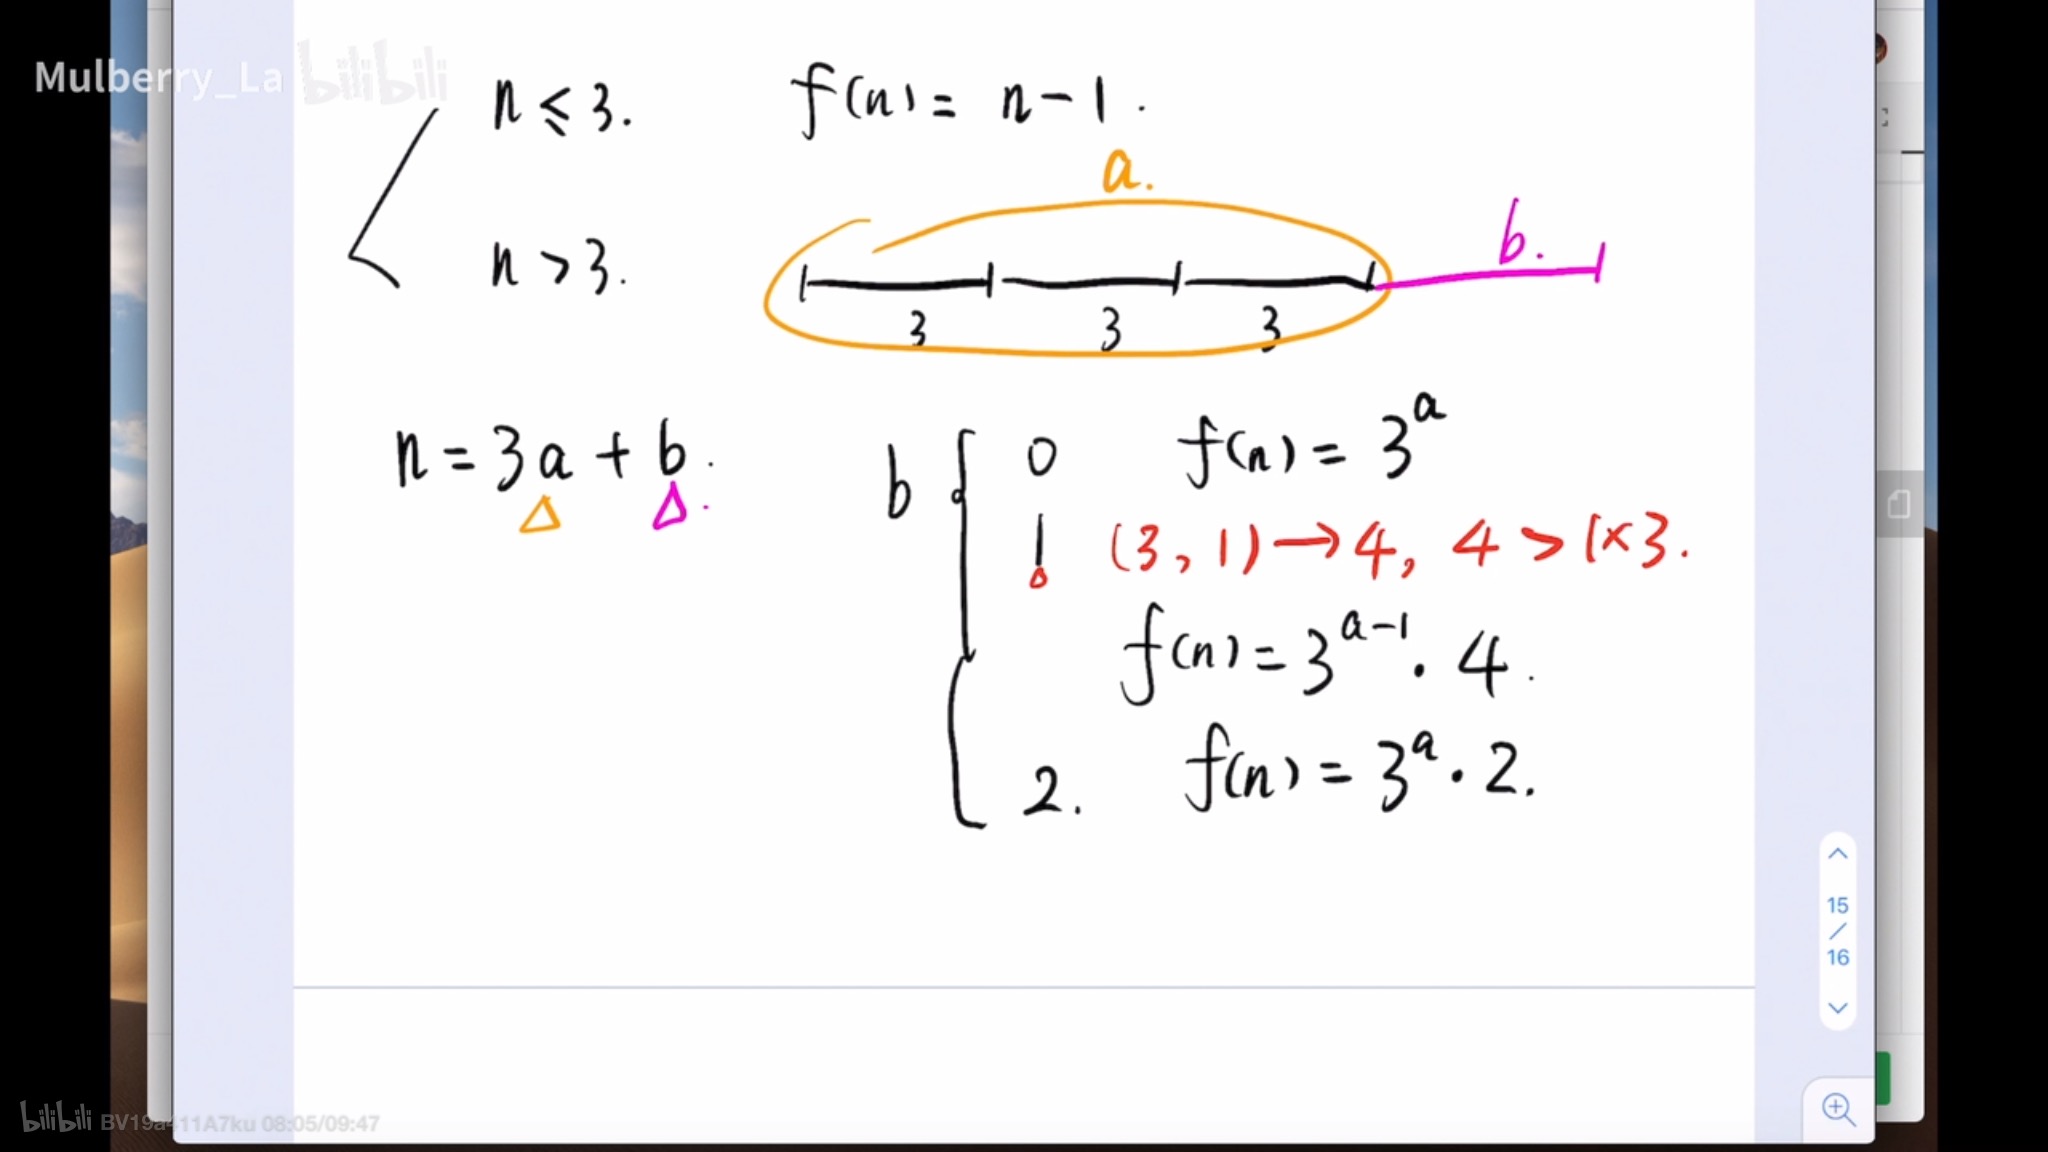 Mulberry_La bilibili
n ≤ 3. f(n) = n - 1.
a.
b.
n > 3.
3 3 3
n = 3a + b.
b { 0 f(n) = 3^a
1 (3, 1) → 4, 4 > 1×3.
f(n) = 3^{a-1} · 4.
2. f(n) = 3^a · 2.
15
/
16
bilibili BV19a411A7ku 08:05/09:47